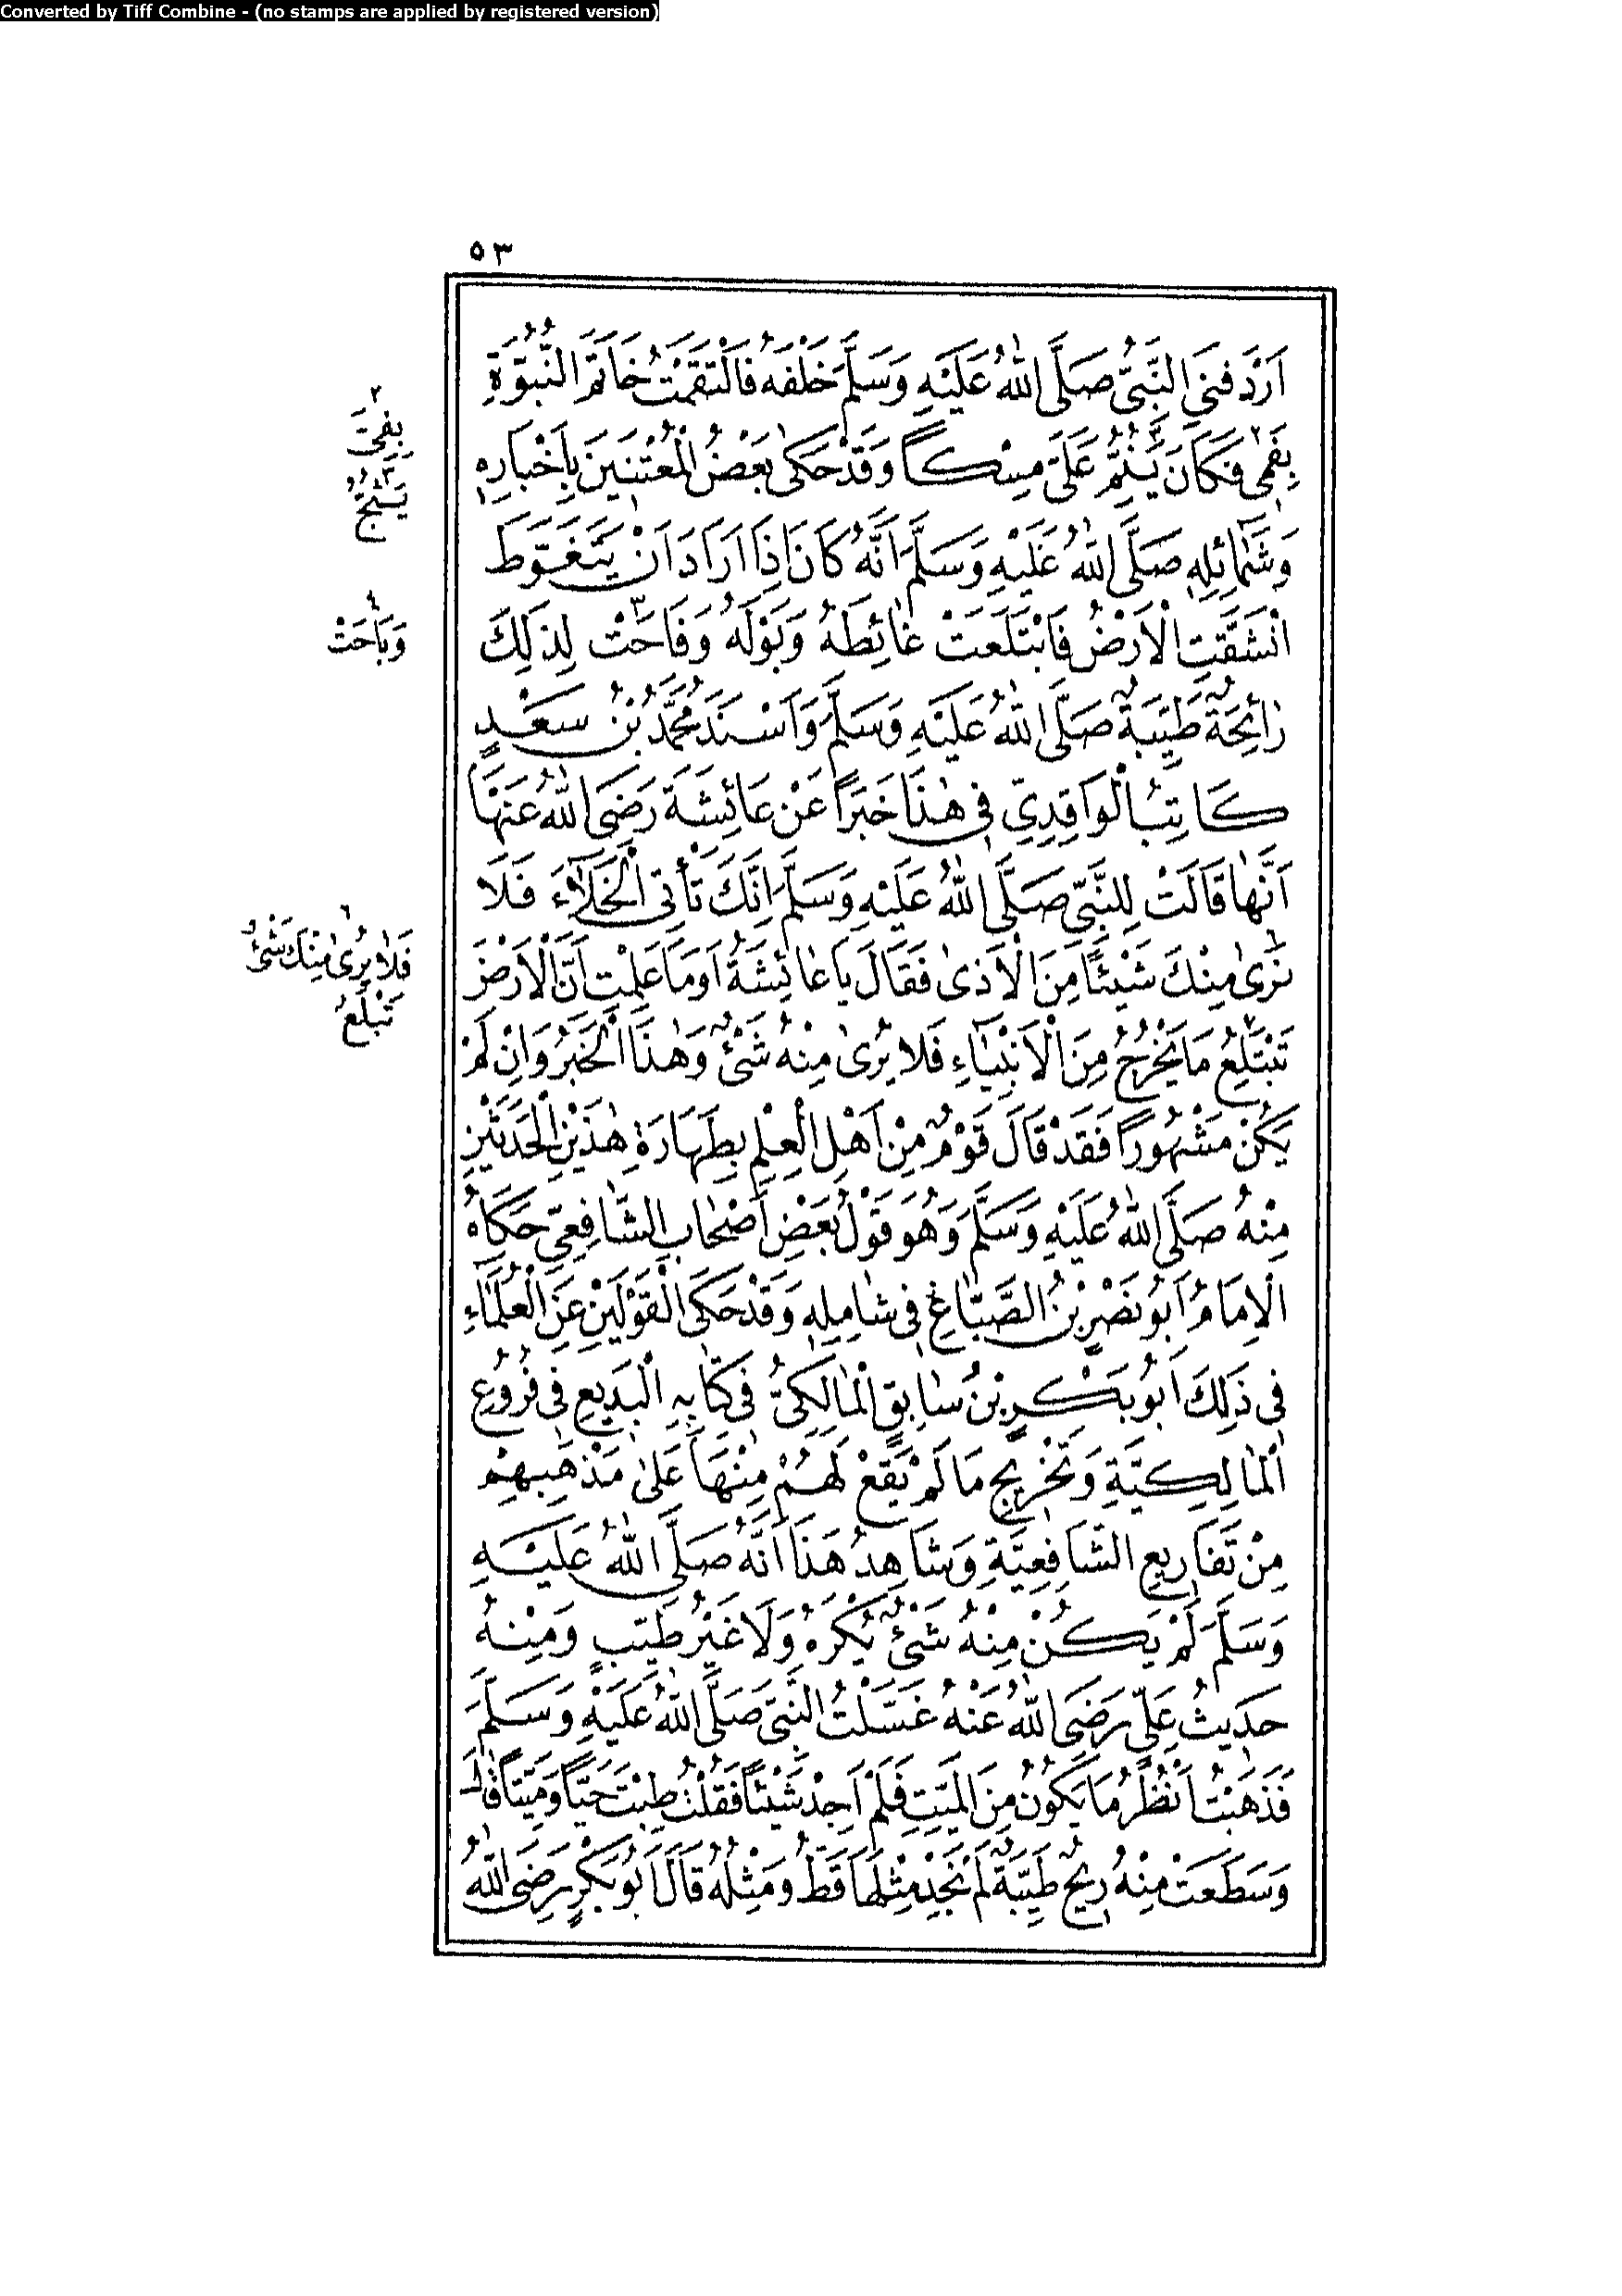 Converted by Tiff Combine - (no stamps are applied by registered version)
٥٣
اَرْدَفَنِي النَّبِيُّ صَلَّى اللهُ عَلَيْهِ وَسَلَّمَ خَلْفَهُ فَالْتَقَمْتُ خَاتَمَ النُّبُوَّةِ
بِفَمِي فَكَانَ يَنُمُّ عَلَيَّ مِسْكاً وَقَدْ حَكَى بَعْضُ الْمُعْتَنِينَ بِأَخْبَارِهِ
وَشَمَائِلِهِ صَلَّى اللهُ عَلَيْهِ وَسَلَّمَ اَنَّهُ كَانَ اِذَا اَرَادَ اَنْ يَتَغَوَّطَ
انْشَقَّتِ الْاَرْضُ فَابْتَلَعَتْ غَائِطَهُ وَبَوْلَهُ وَفَاحَتْ لِذَلِكَ
رَائِحَةٌ طَيِّبَةٌ صَلَّى اللهُ عَلَيْهِ وَسَلَّمَ وَاَسْنَدَ مُحَمَّدُ بْنُ سَعْدٍ
كَاتِبُ الْوَاقِدِيِّ فِي هٰذَا خَبَراً عَنْ عَائِشَةَ رَضِيَ اللهُ عَنْهَا
اَنَّهَا قَالَتْ لِلنَّبِيِّ صَلَّى اللهُ عَلَيْهِ وَسَلَّمَ اِنَّكَ تَأْتِي الْخَلَاءَ فَلَا
نَرٰى مِنْكَ شَيْئًا مِنَ الْاَذٰى فَقَالَ يَا عَائِشَةُ اَوَمَا عَلِمْتِ اَنَّ الْاَرْضَ
تَبْتَلِعُ مَا يَخْرُجُ مِنَ الْاَنْبِيَاءِ فَلَا يُرٰى مِنْهُ شَيْءٌ وَهٰذَا الْخَبَرُ وَاِنْ لَمْ
يَكُنْ مَشْهُوراً فَقَدْ قَالَ قَوْمٌ مِنْ اَهْلِ الْعِلْمِ بِطَهَارَةِ هٰذَيْنِ الْحَدَثَيْنِ
مِنْهُ صَلَّى اللهُ عَلَيْهِ وَسَلَّمَ وَهُوَ قَوْلُ بَعْضِ اَصْحَابِ الشَّافِعِيِّ حَكَاهُ
الْاِمَامُ اَبُو نَصْرِ بْنُ الصَّبَّاغِ فِي شَامِلِهِ وَقَدْ حَكَى الْقَوْلَيْنِ عَنِ الْعُلَمَاءِ
فِي ذَلِكَ اَبُو بَكْرِ بْنُ سَابِقٍ الْمَالِكِيُّ فِي كِتَابِهِ الْبَدِيعِ فِي فُرُوعِ
الْمَالِكِيَّةِ وَتَخْرِيجِ مَا لَمْ يَقَعْ لَهُمْ مِنْهَا عَلَى مَذْهَبِهِمْ
مِنْ تَفَارِيعِ الشَّافِعِيَّةِ وَشَاهِدُ هَذَا اَنَّهُ صَلَّى اللهُ عَلَيْهِ
وَسَلَّمَ لَمْ يَكُنْ مِنْهُ شَيْءٌ يُكْرَهُ وَلَا غَيْرُ طَيِّبٍ وَمِنْهُ
حَدِيثُ عَلِيٍّ رَضِيَ اللهُ عَنْهُ غَسَّلْتُ النَّبِيَّ صَلَّى اللهُ عَلَيْهِ وَسَلَّمَ
فَذَهَبْتُ اَنْظُرُ مَا يَكُونُ مِنَ الْمَيِّتِ فَلَمْ اَجِدْ شَيْئًا فَقُلْتُ طِبْتَ حَيًّا وَمَيِّتًا قَالَ
وَسَطَعَتْ مِنْهُ رِيحٌ طَيِّبَةٌ لَمْ نَجِدْ مِثْلَهَا قَطُّ وَمِثْلُهُ قَالَ اَبُو بَكْرٍ رَضِيَ اللهُ
٢
٣
٤
وَبَاحَتْ
٦
فَلَا يُرٰى مِنْكَ شَيْءٌ
تَبْلَعُ